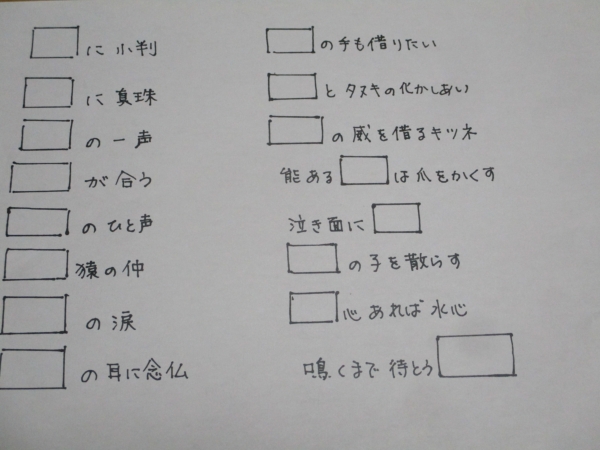 に小判
に真珠
の一声
が合う
のひと声
猿の仲
の涙
の耳に念仏
の手も借りたい
とタヌキの化かしあい
の威を借るキツネ
能ある は爪をかくす
泣き面に
の子を散らす
心あれば水心
鳴くまで待とう